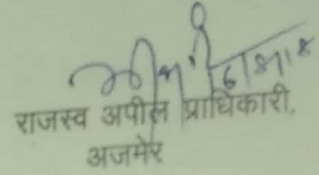 राजस्व अपील प्राधिकारी,
अजमेर